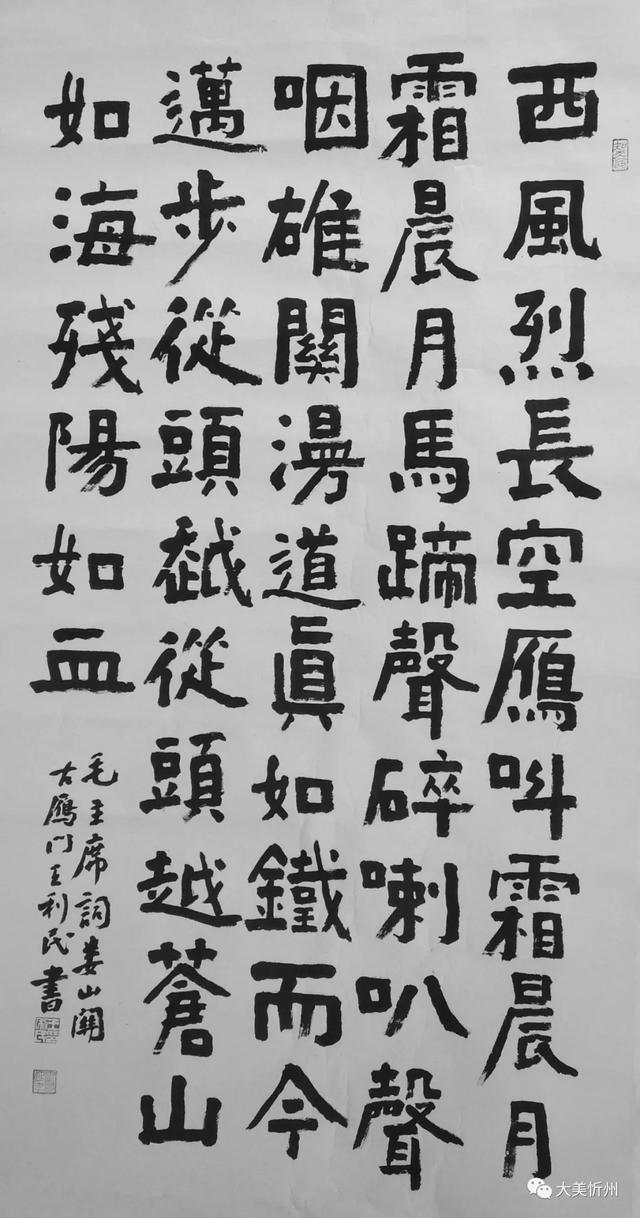 西風烈長空鴈呌霜晨月
霜晨月馬蹄聲碎喇叭聲
咽雄關漫道眞如鐵而今
邁步從頭越從頭越蒼山
如海殘陽如血
毛主席詞婁山關
古鴈門王利民書
大美忻州